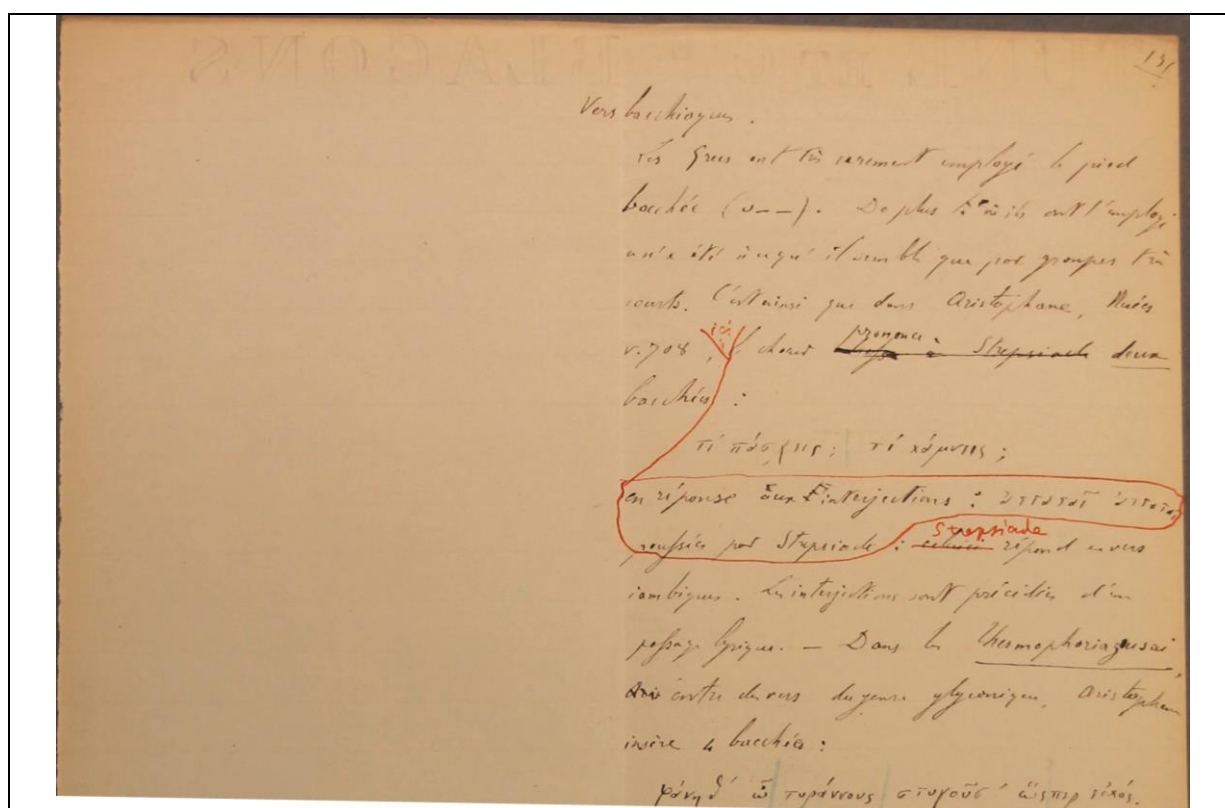 191
Vers bacchiaques.
Les Grecs ont très rarement employé le pied
bachée (υ – –). De plus là où ils ont l'employ
n'a été à ce qu'il semble que par groupes très
courts. C'est ainsi que dans Aristophane, Nuées
ici prononce
v. 708, le chœur à Strepsiade deux
bacchées :
τί πάσχεις; τί κάμνεις;
en réponse aux interjections : ἀτταταῖ ἀτταταῖ
Strepsiade
poussées par Strepsiade : répond en vers
iambiques. Les interjections sont précédées d'un
passage lyrique. — Dans les Thesmophoriazusai,
entre des vers du genre glyconique, Aristophane
insère 4 bacchées :
φάνηθ' ὦ τυράννους στυγοῦσ' ὥσπερ εἰκός.